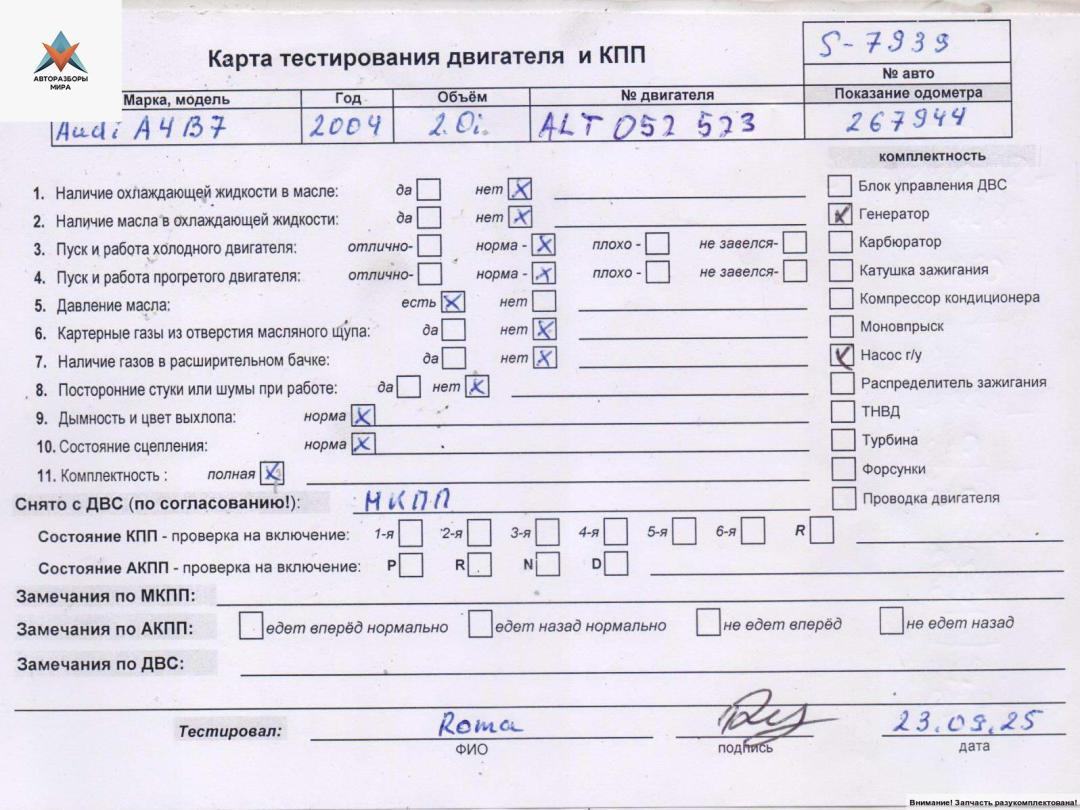 АВТОРАЗБОРЫ
МИРА
Карта тестирования двигателя и КПП
S-7939
№ авто
Марка, модель Год Объём № двигателя Показание одометра
Audi A4B7 2004 2.0i ALT 052 523 267944
комплектность
1. Наличие охлаждающей жидкости в масле: да нет X
2. Наличие масла в охлаждающей жидкости: да нет X
3. Пуск и работа холодного двигателя: отлично- норма - X плохо - не завелся-
4. Пуск и работа прогретого двигателя: отлично- норма - X плохо - не завелся-
5. Давление масла: есть X нет
6. Картерные газы из отверстия масляного щупа: да нет X
7. Наличие газов в расширительном бачке: да нет X
8. Посторонние стуки или шумы при работе: да нет X
9. Дымность и цвет выхлопа: норма X
10. Состояние сцепления: норма X
11. Комплектность : полная X
Блок управления ДВС
Генератор
Карбюратор
Катушка зажигания
Компрессор кондиционера
Моновпрыск
Насос г/у
Распределитель зажигания
ТНВД
Турбина
Форсунки
Проводка двигателя
Снято с ДВС (по согласованию!): МКПП
Состояние КПП - проверка на включение: 1-я 2-я 3-я 4-я 5-я 6-я R
Состояние АКПП - проверка на включение: P R N D
Замечания по МКПП:
Замечания по АКПП: едет вперёд нормально едет назад нормально не едет вперёд не едет назад
Замечания по ДВС:
Тестировал: Roma 23.09.25
ФИО подпись дата
Внимание! Запчасть разукомплектована!